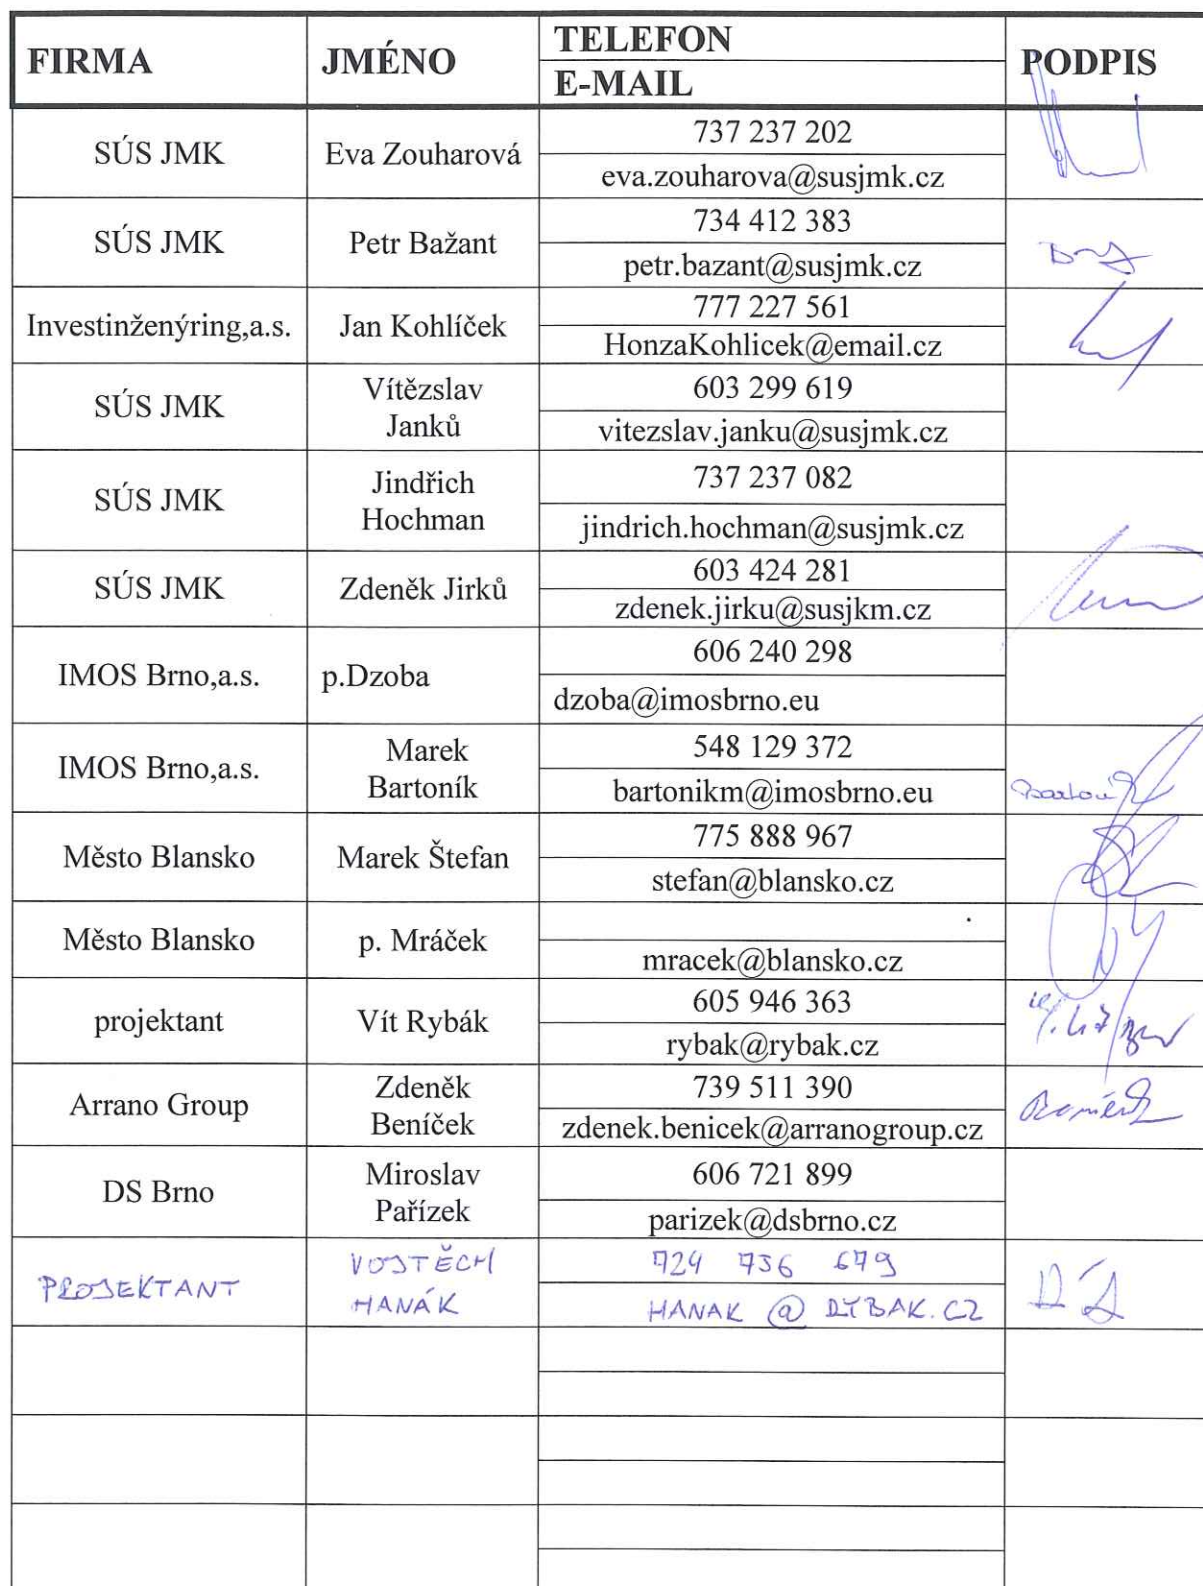 FIRMA JMÉNO TELEFON PODPIS
E-MAIL
SÚS JMK Eva Zouharová 737 237 202
eva.zouharova@susjmk.cz
SÚS JMK Petr Bažant 734 412 383
petr.bazant@susjmk.cz
Investinženýring,a.s. Jan Kohlíček 777 227 561
HonzaKohlicek@email.cz
SÚS JMK Vítězslav 603 299 619
Janků vitezslav.janku@susjmk.cz
SÚS JMK Jindřich 737 237 082
Hochman jindrich.hochman@susjmk.cz
SÚS JMK Zdeněk Jirků 603 424 281
zdenek.jirku@susjkm.cz
IMOS Brno,a.s. p.Dzoba 606 240 298
dzoba@imosbrno.eu
IMOS Brno,a.s. Marek 548 129 372
Bartoník bartonikm@imosbrno.eu
Město Blansko Marek Štefan 775 888 967
stefan@blansko.cz
Město Blansko p. Mráček
mracek@blansko.cz
projektant Vít Rybák 605 946 363
rybak@rybak.cz
Arrano Group Zdeněk 739 511 390
Beníček zdenek.benicek@arranogroup.cz
DS Brno Miroslav 606 721 899
Pařízek parizek@dsbrno.cz
PROJEKTANT VOJTĚCH 724 736 679
HANÁK HANAK @ RYBAK.CZ